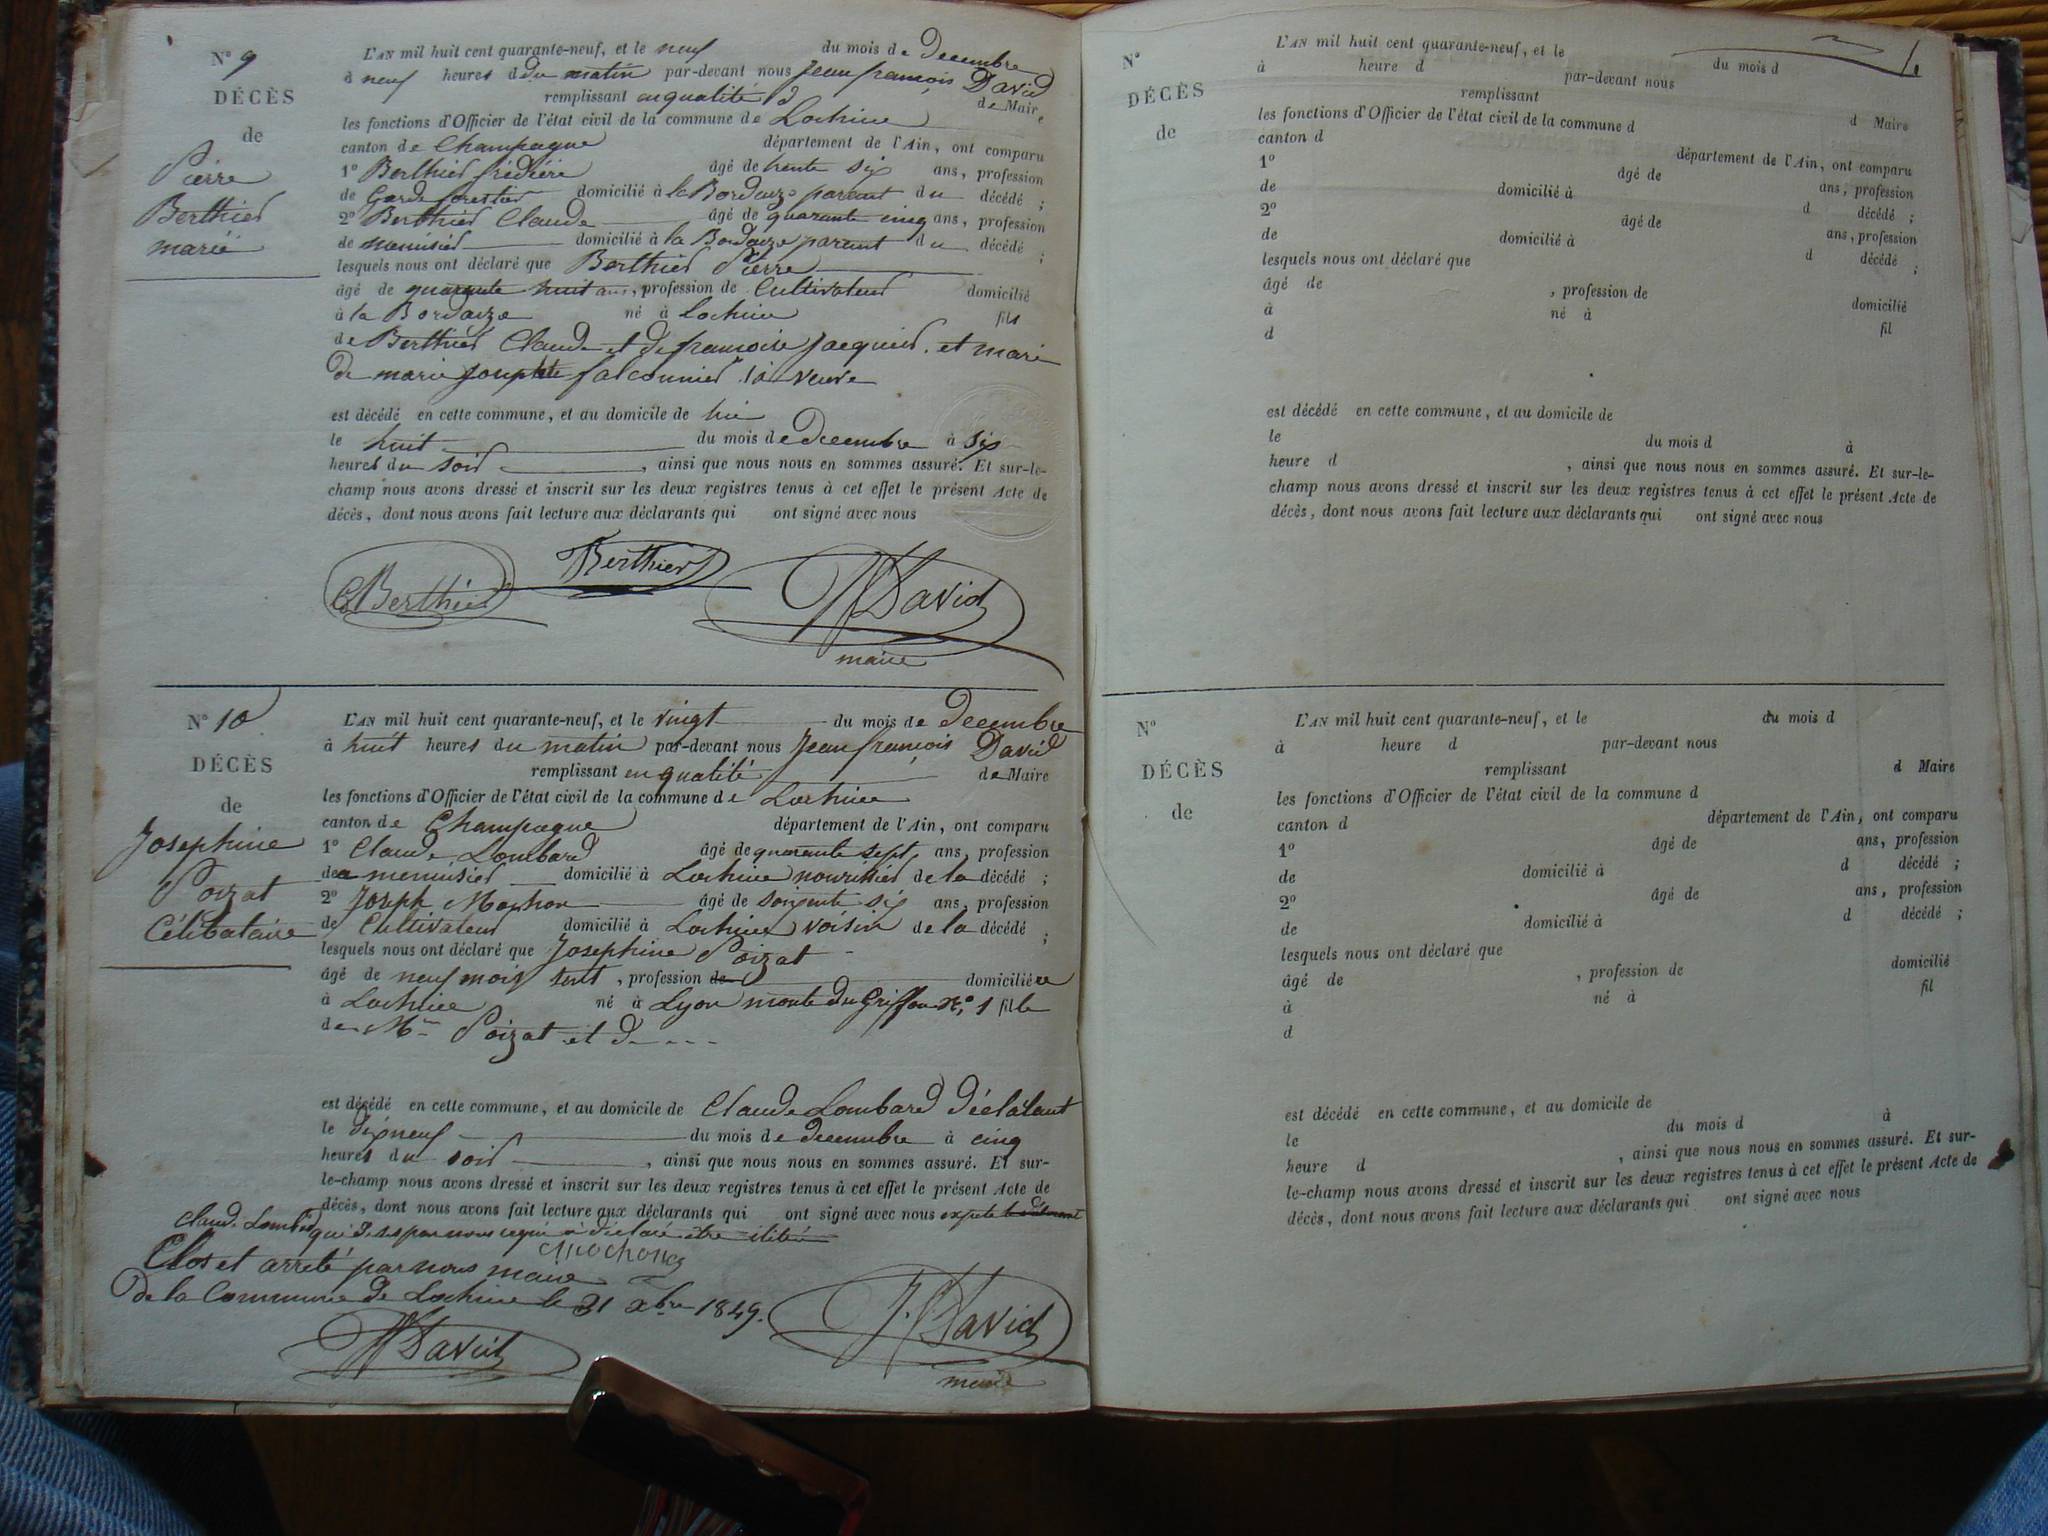 N° 9
DÉCÈS
de
Pierre
Berthier
marié
L'AN mil huit cent quarante-neuf, et le neuf du mois de Decembre
à neuf heures d du matin par-devant nous Jean françois David
remplissant en qualité d de Maire
les fonctions d'Officier de l'état civil de la commune de Lochieu
canton de Champagne département de l'Ain, ont comparu
1° Berthier fréderic âgé de trente six ans, profession
de Garde forestier domicilié à la Bordaize parent du décédé ;
2° Berthier Claude âgé de quarante cinq ans, profession
de menusier domicilié à la Bordaize parent du décédé ;
lesquels nous ont déclaré que Berthier Pierre
âgé de quarante huit ans, profession de Cultivateur domicilié
à la Bordaize né à Lochieu fils
de Berthier Claude et de francoise Jacquier. et marié
de marie Josephte falconnier sa veuve
est décédé en cette commune, et au domicile de
le huit du mois de Decembre à six
heures du soir , ainsi que nous nous en sommes assuré. Et sur-le-
champ nous avons dressé et inscrit sur les deux registres tenus à cet effet le présent Acte de
décès, dont nous avons fait lecture aux déclarants qui ont signé avec nous
C Berthier Berthier JF David
maire
N° 10
DÉCÈS
de
Josephine
Poizat
Célibataire
L'AN mil huit cent quarante-neuf, et le vingt du mois de Decembre
à huit heures du matin par-devant nous Jean françois David
remplissant en qualité de Maire
les fonctions d'Officier de l'état civil de la commune de Lochieu
canton de Champagne département de l'Ain, ont comparu
1° Claude Lombard âgé de quarante sept ans, profession
de menuisier domicilié à Lochieu nourissier de la décédé ;
2° Joseph Mochon âgé de soixante six ans, profession
de Cultivateur domicilié à Lochieu voisin de la décédé ;
lesquels nous ont déclaré que Josephine Poizat
âgé de neuf mois , profession de domiciliée
à Lochieu né à Lyon monte du Griffon N° 1 fille
de Mr Poizat et d - - -
est décédé en cette commune, et au domicile de Claude Lombard Déclarant
le dix neuf du mois de decembre à cinq
heures du soir , ainsi que nous nous en sommes assuré. Et sur-
le-champ nous avons dressé et inscrit sur les deux registres tenus à cet effet le présent Acte de
décès, dont nous avons fait lecture aux déclarants qui ont signé avec nous
Claude Lombard qui par nous requi a déclaré être
Mochon
Clos et arreté par nous maire
de la Commune de Lochieu le 31 xbre 1849.
JF David J. F David
maire
N°
DÉCÈS
de
L'AN mil huit cent quarante-neuf, et le du mois d
à heure d par-devant nous
remplissant d Maire
les fonctions d'Officier de l'état civil de la commune d
canton d département de l'Ain, ont comparu
1° âgé de ans, profession
de domicilié à d décédé ;
2° âgé de ans, profession
de domicilié à d décédé ;
lesquels nous ont déclaré que
âgé de , profession de domicilié
à né à fil
d
est décédé en cette commune, et au domicile de
le du mois d à
heure d , ainsi que nous nous en sommes assuré. Et sur-le-
champ nous avons dressé et inscrit sur les deux registres tenus à cet effet le présent Acte de
décès, dont nous avons fait lecture aux déclarants qui ont signé avec nous
N°
DÉCÈS
de
L'AN mil huit cent quarante-neuf, et le du mois d
à heure d par-devant nous
remplissant d Maire
les fonctions d'Officier de l'état civil de la commune d
canton d département de l'Ain, ont comparu
1° âgé de ans, profession
de domicilié à d décédé ;
2° âgé de ans, profession
de domicilié à d décédé ;
lesquels nous ont déclaré que
âgé de , profession de domicilié
à né à fil
d
est décédé en cette commune, et au domicile de
le du mois d à
heure d , ainsi que nous nous en sommes assuré. Et sur-
le-champ nous avons dressé et inscrit sur les deux registres tenus à cet effet le présent Acte de
décès, dont nous avons fait lecture aux déclarants qui ont signé avec nous